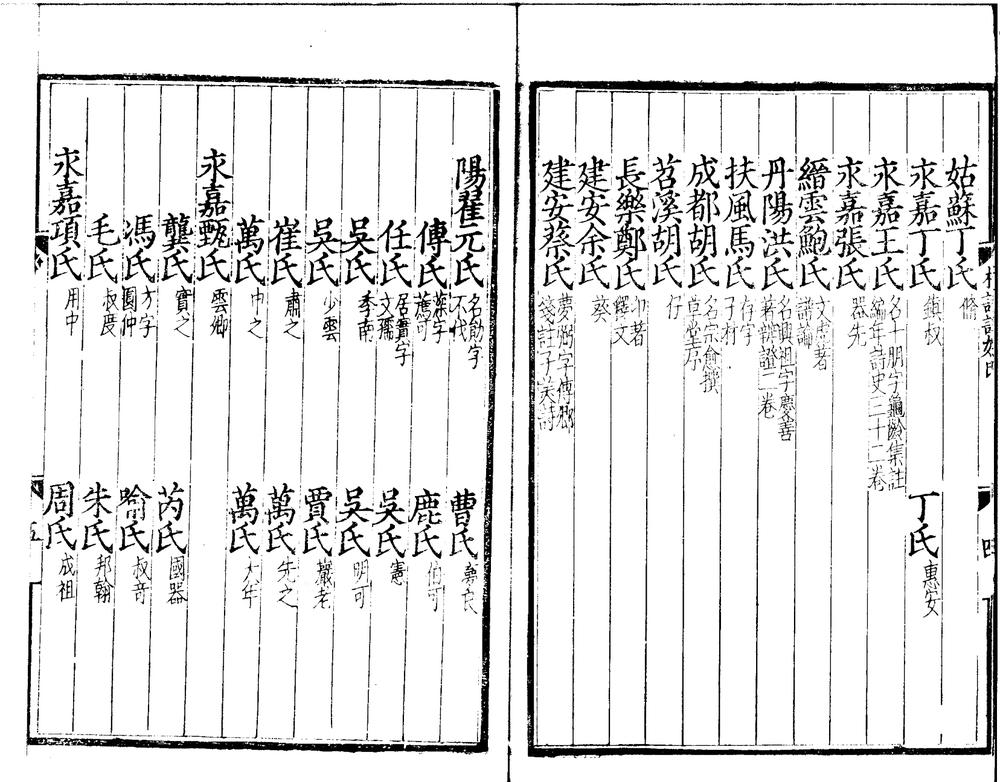 姑蘇丁氏 脩
永嘉丁氏 鎮叔 丁氏 惠安
永嘉王氏 名十朋字龜齡集註編年詩史三十二卷
永嘉張氏 器先
縉雲鮑氏 文虎著譜論
丹陽洪氏 名興祖字慶善著辯證二卷
扶風馬氏 存字子才
成都胡氏 名宗愈撰草堂序
苕溪胡氏 仔
長樂鄭氏 卬著釋文
建安余氏 葵
建安蔡氏 夢弼字傅卿箋註子美詩
陽翟元氏 名勛字不伐 曹氏 夢良
傅氏 藻字薦可 鹿氏 伯可
任氏 居實字文孺 吳氏 憲
吳氏 季南 吳氏 明可
吳氏 少雲 賈氏 巖老
崔氏 肅之 萬氏 先之
萬氏 申之 萬氏 大年
永嘉甄氏 雲卿
龔氏 實之 芮氏 國器
馮氏 方字圓仲 喻氏 叔奇
毛氏 叔度 朱氏 邦翰
永嘉項氏 用中 周氏 成祖
五